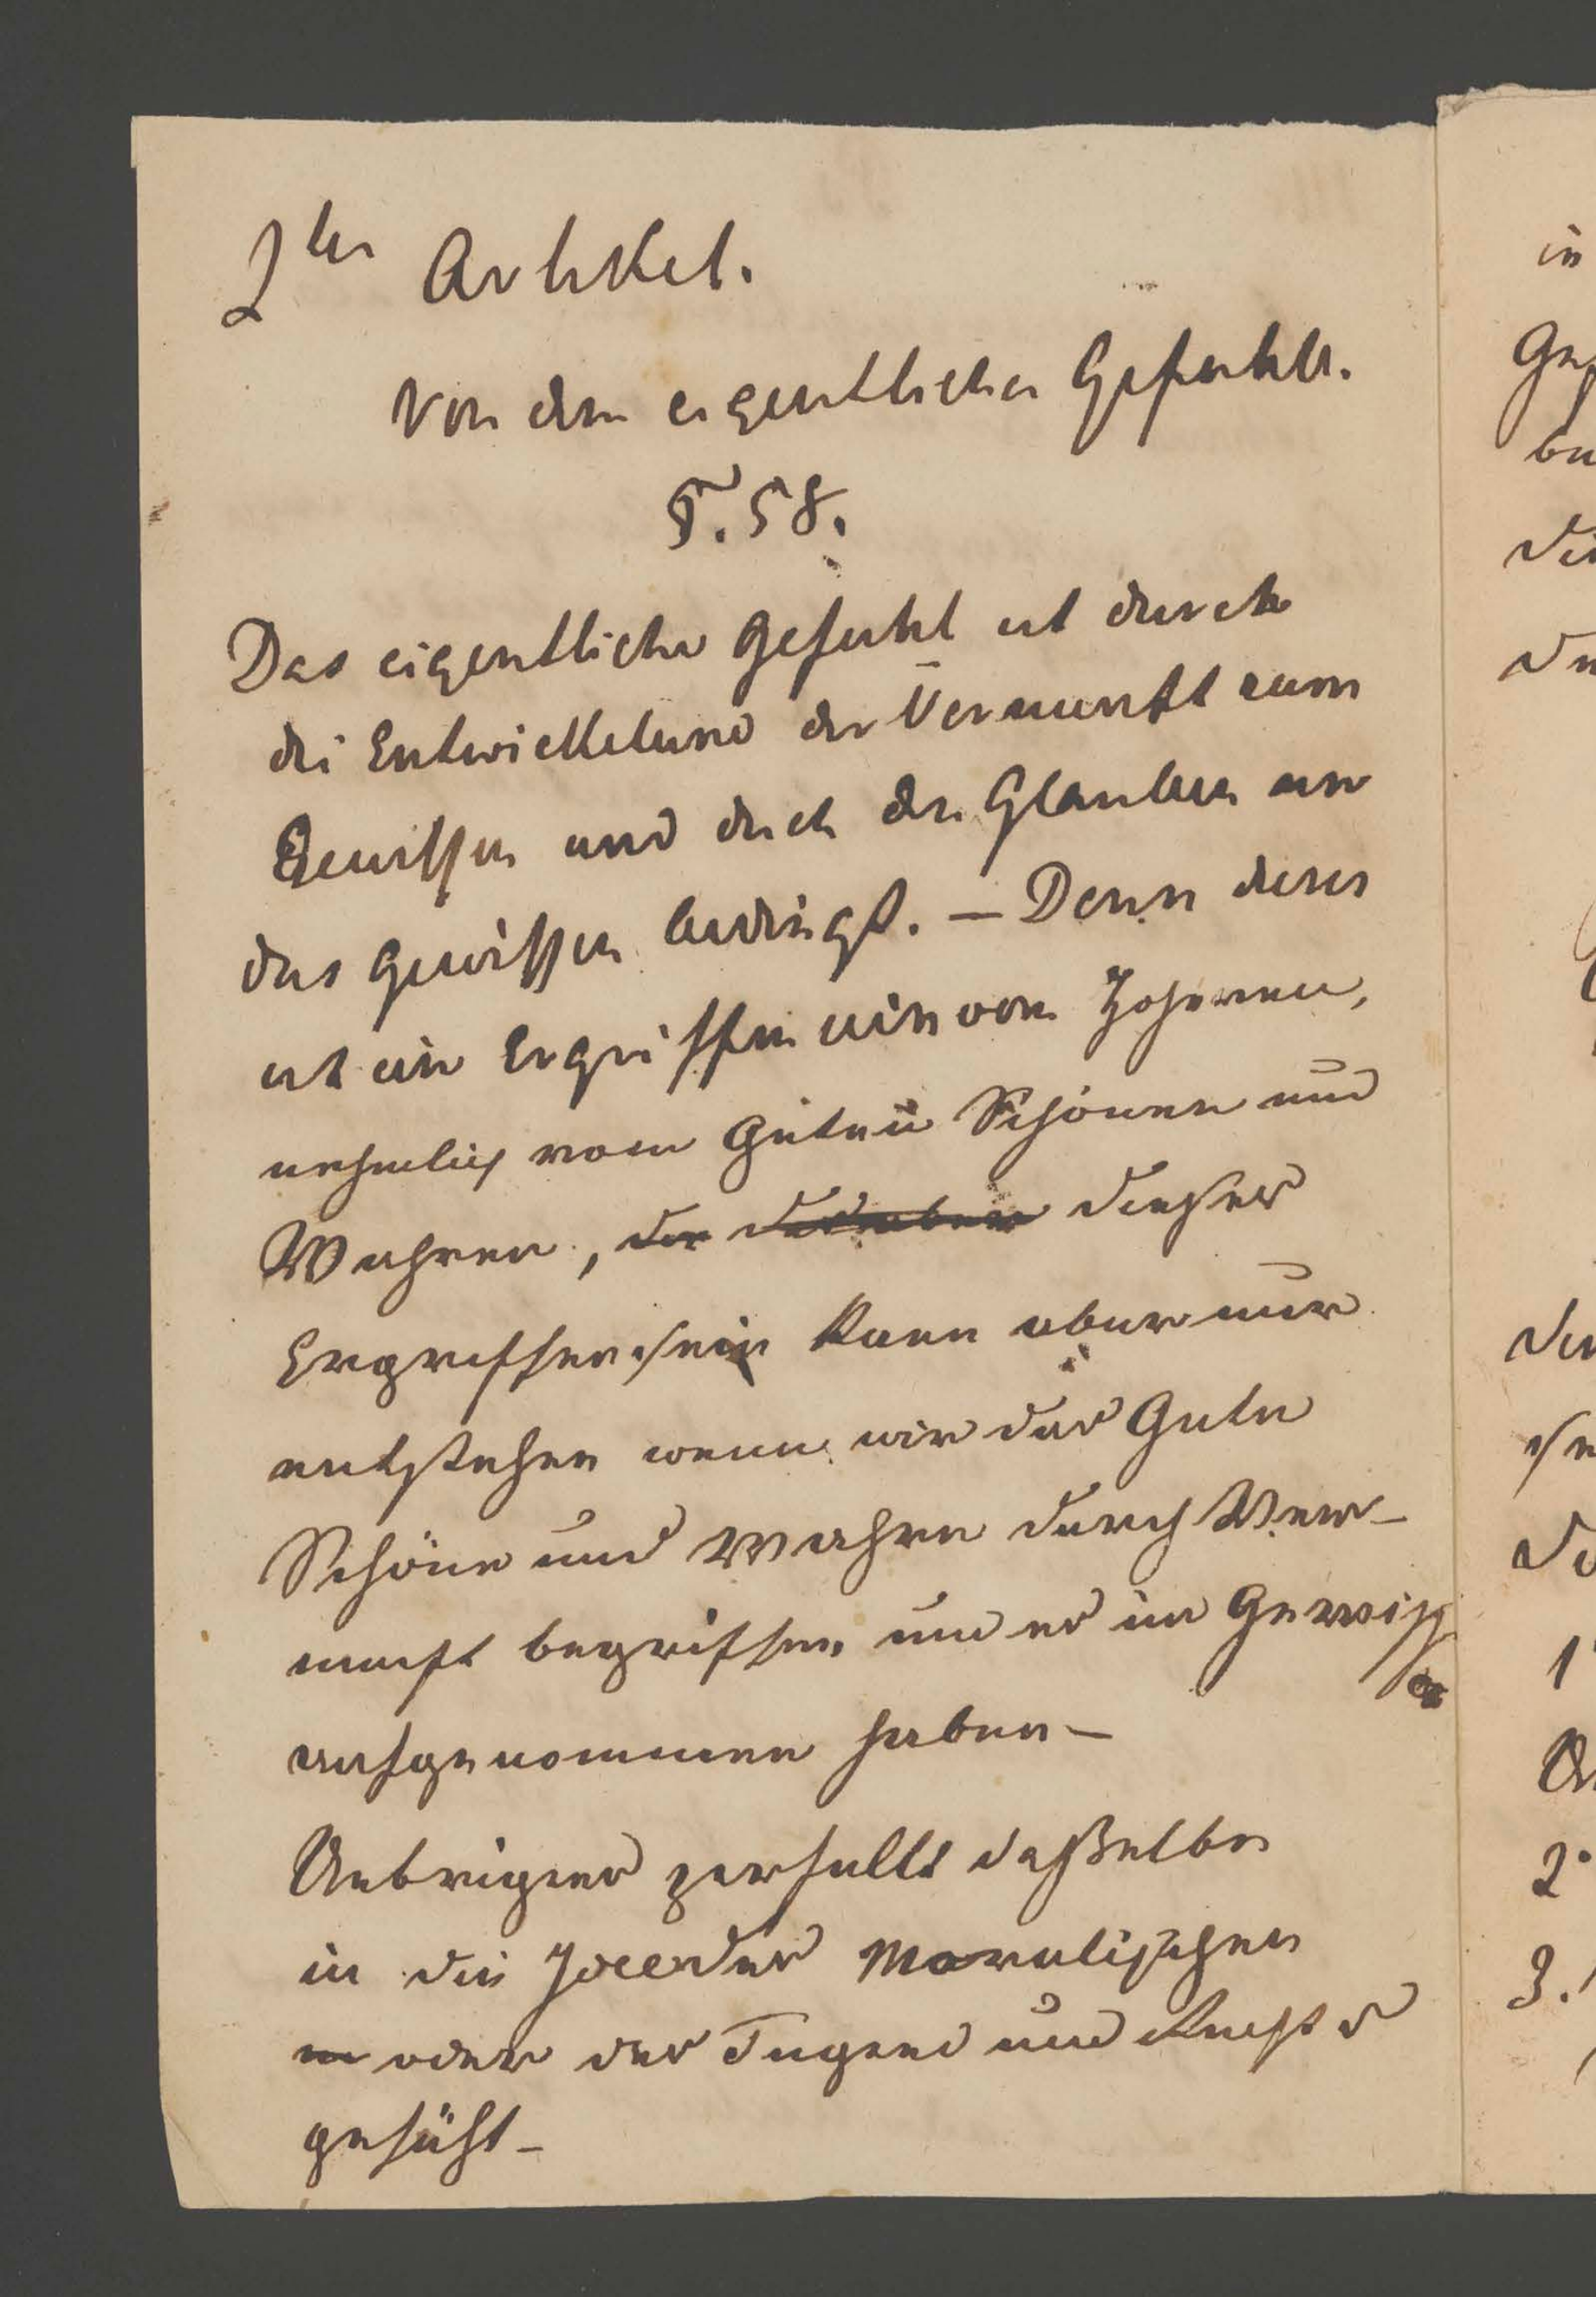 2ter Artikel.
Von dem eigentlichen Gefuhle.
§. 58.
Das eigentliche Gefuhl ist durch
die Entwickelung der Vernunft zum
Gewissen und durch den Glauben an
das Gewissen bedingt. — Denn dieses
ist ein Ergriffensein vom Hoheren,
nehmlich vom Guten Schönen und
Wahren, der dieses
Ergriffensein kann aber nur
entstehen wenn wir das Gute
Schöne und Wahre durch Ver-
nunft begriffen und es im Gewiss
en
aufgenommen haben —
Uebrigens zerfallt daßelbe
in die Idee des Moralischen
oder der Tugend und Kunst
gefühl —
in
Ge
be
die
de
1
2.
3.